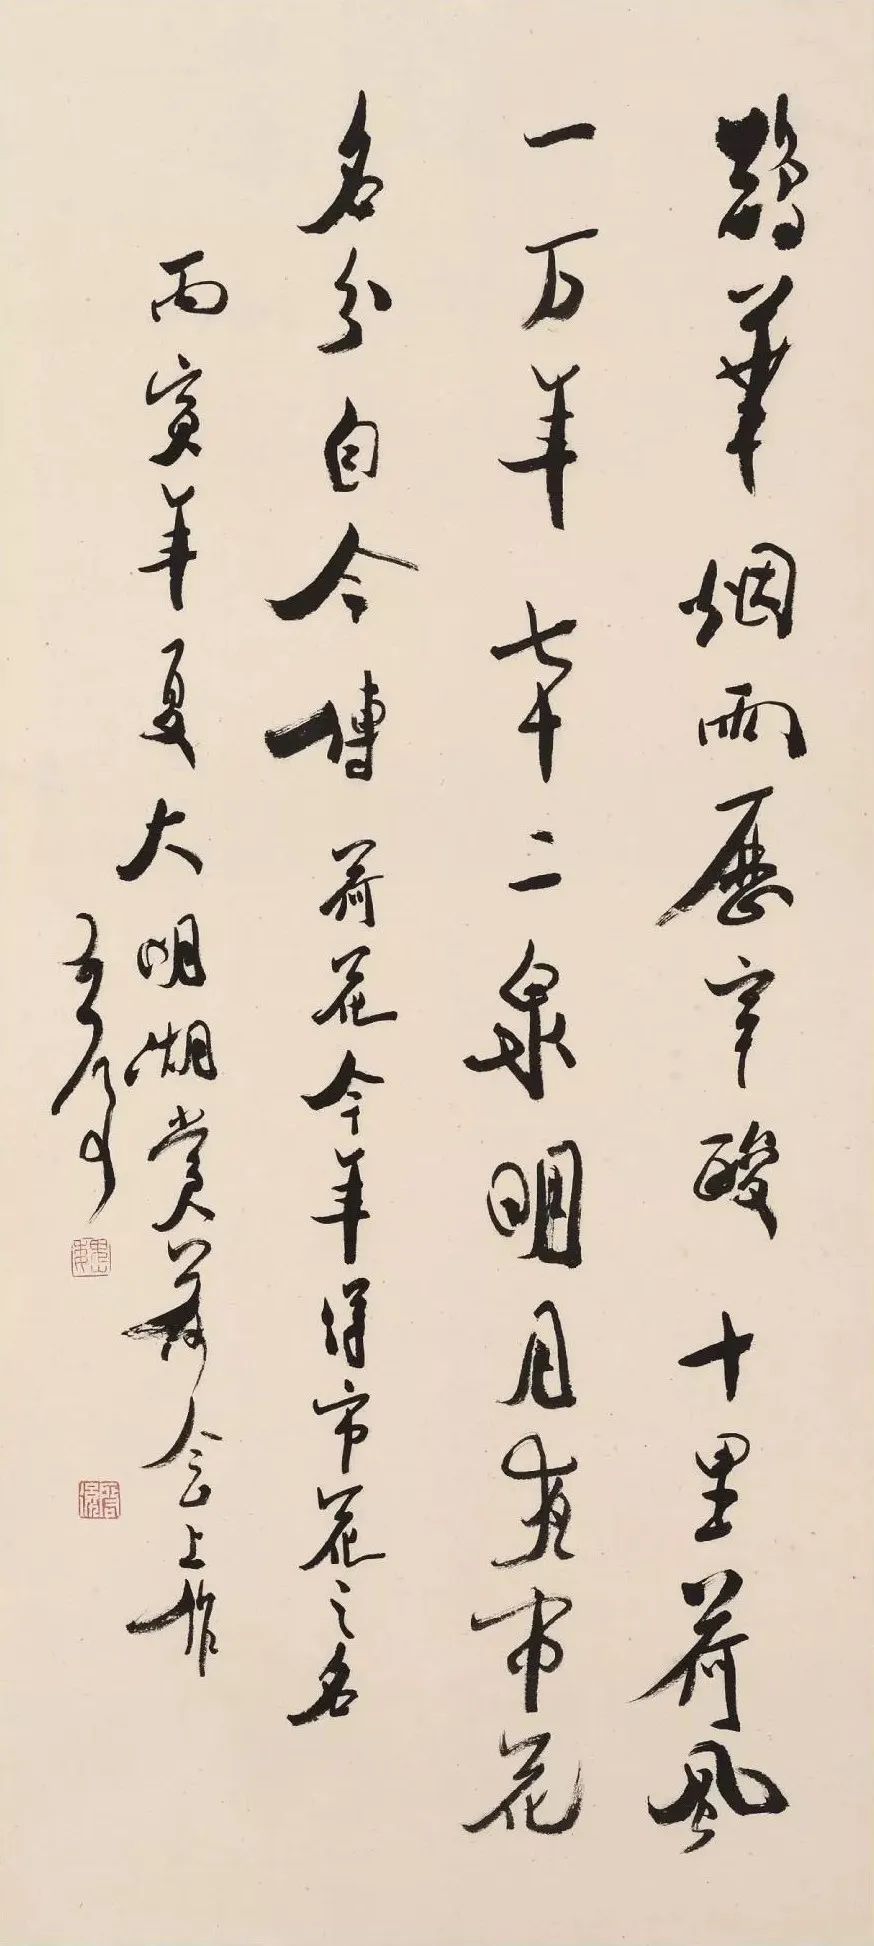 鵲華烟雨歷辛酸十里荷風
一万年七十二泉明月夜市花
名分自今傳荷花今年得市花之名
丙寅年夏大明湖賞荷会上作